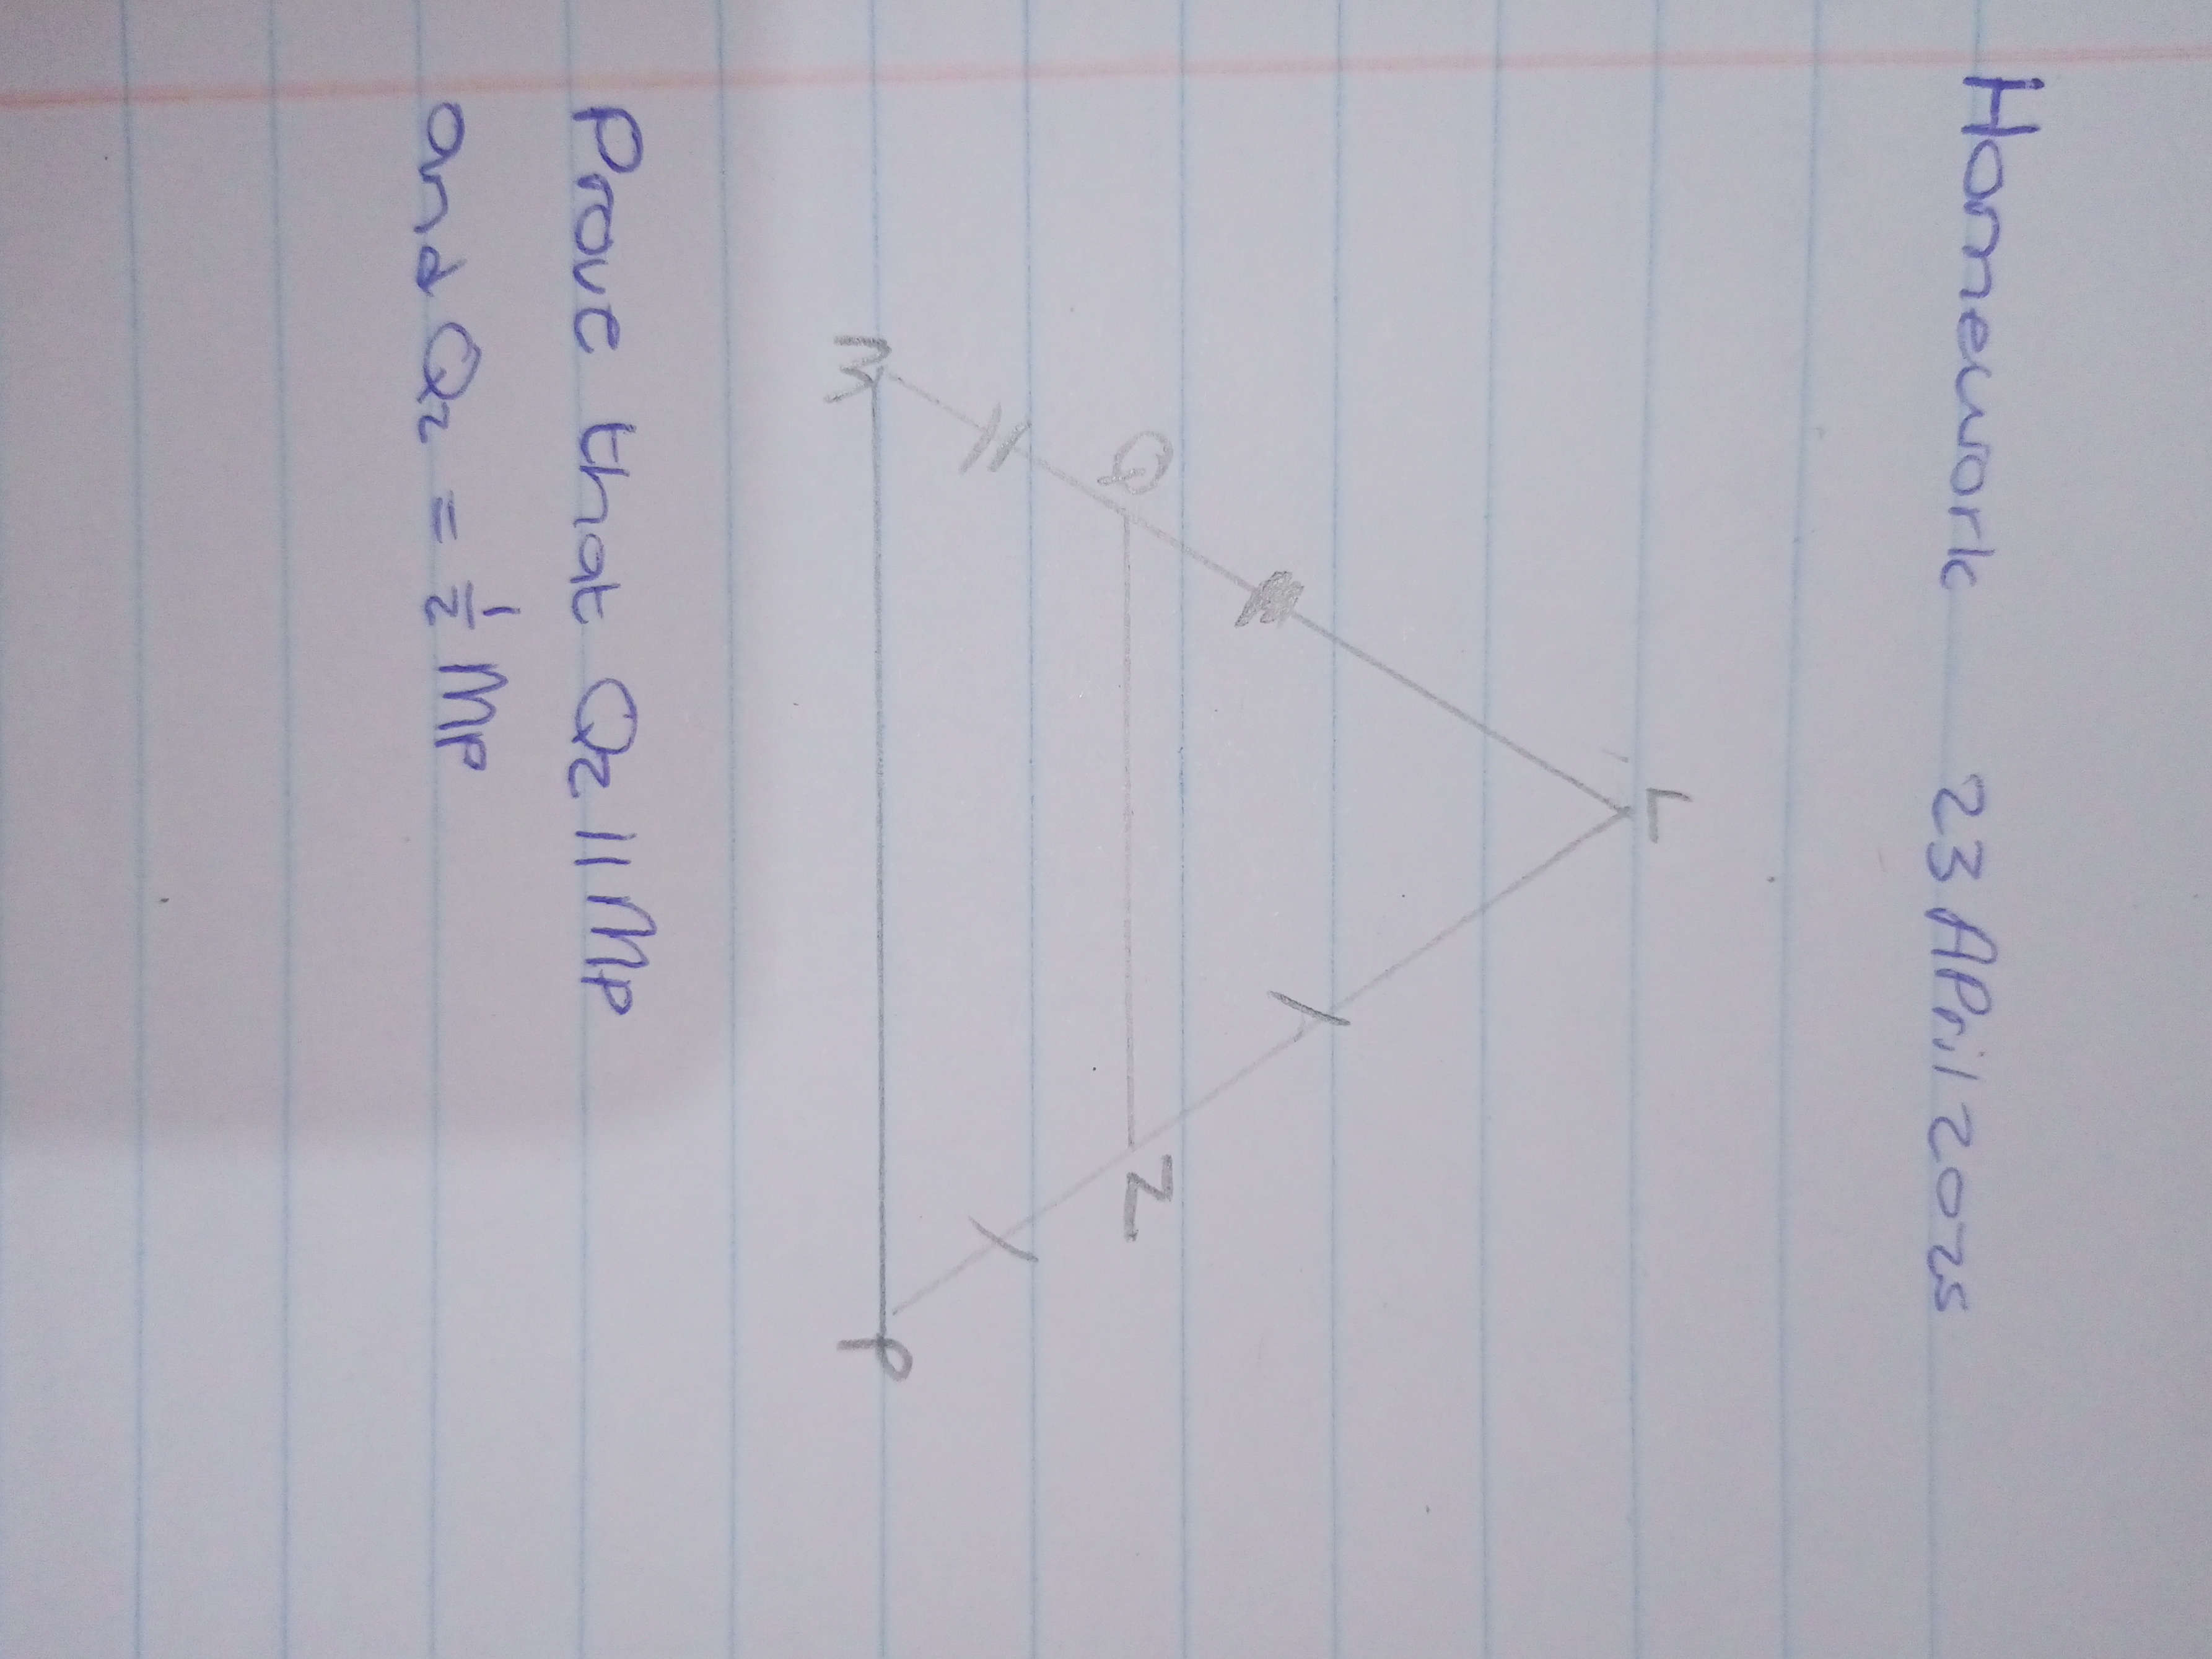 Homework 23 APril 2025
L
Q Z
M P
Prove that QZ || MP
and QZ = 1/2 MP